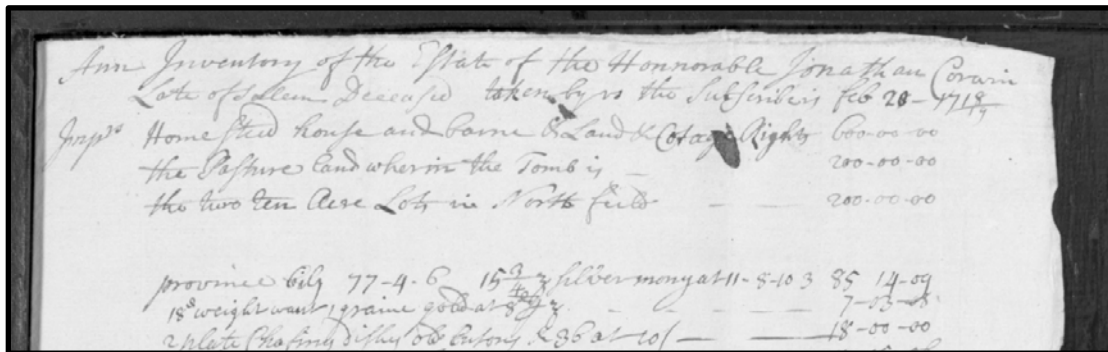 Ann Inventory of the Estate of the Honnorable Jonathan Corwin
Late of Salem Deceased taken by us the Subscribers feb 28 - 1718/19
Inprs Home sted house and barne & Land & Cotage Rights 600-00-00
the Pasture land wherin the Tomb is 200-00-00
the two ten Acre Lots in North field 200-00-00
province bils 77-4-6 15 3/4 z silver mony at 11-8-10 3 85 14-09
weight want 1 graine gold at 7-03-
2 plate Chafing dishes old & 36 at 10/ 18-00-00